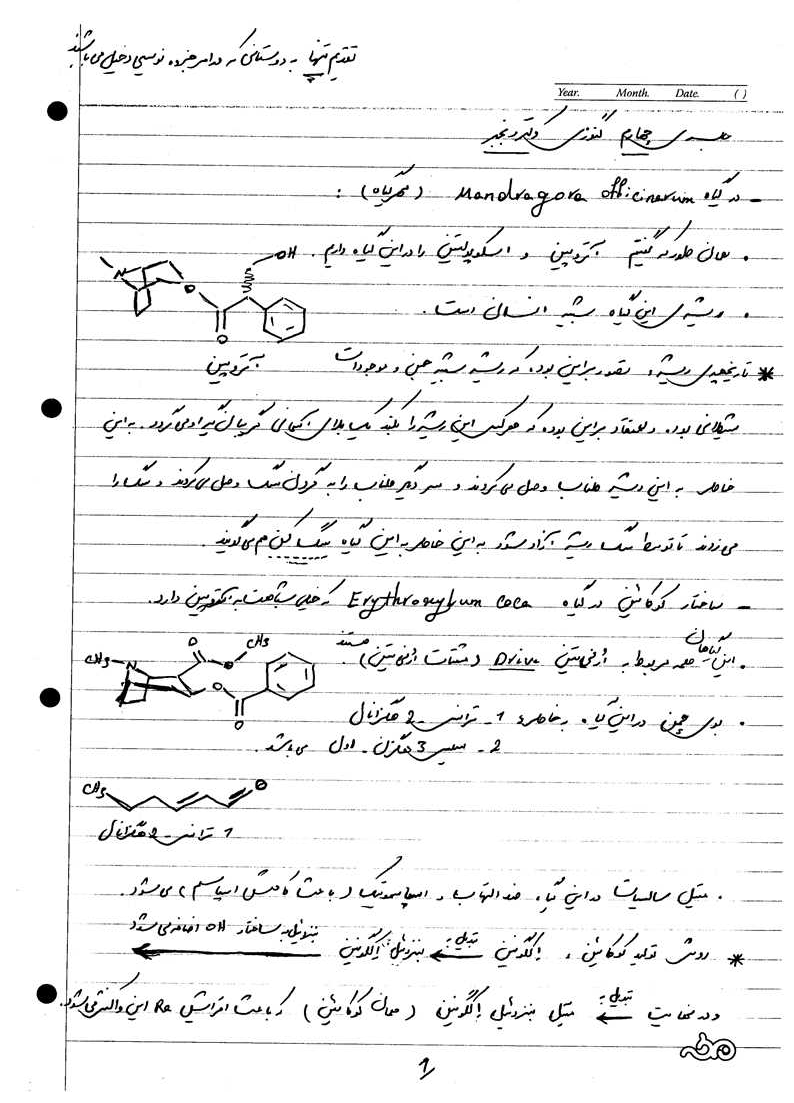 تقدیم تنها به دوستانی که در امر جزوه نویسی دخیل می باشند
Year. Month. Date. ( )
جلسه ی چهارم گنوزی دکتر رنجبر
- در گیاه Mandragora officinarum (مهرگیاه) :
• همان طور که گفتیم آتروپین و اسکوپولامین را در این گیاه داریم.
OH
N
O
O
• ریشه ی این گیاه شبیه انسان است.
آتروپین
* تاریخچه ی ریشه: تصور بر این بوده که ریشه شبیه جن و موجودات
شیطانی بوده و اعتقاد بر این بوده که هرکس این ریشه را بکند یک بلای آسمانی گریبان گیر او می گردد. به این
خاطر به این ریشه طناب وصل می کردند و سر دیگر طناب را به گردن سگ وصل می کردند و سگ را
می زدند تا توسط سگ ریشه آزاد شود به این خاطر به این گیاه سگ کن هم می گویند.
- ساختار کوکائین در گیاه Erythroxylum coca که خیلی شباهت به آتروپین دارد.
• این گیاهان همه مربوط به ارنی تین Drive (مشتقات ارنی تین) هستند.
CH3 N O O CH3
O
O
• بوی چمن در این گیاه به خاطر: 1- ترانس-2 هگزانال
2- سیس 3 هگزن-اول می باشد.
CH3 O
1 ترانس-2 هگزانال
• متیل سالیسیلات در این گیاه ضد التهاب و اسپاسمولتیک (باعث کاهش اسپاسم) می شود.
* روش تولید کوکائین: اکگونین تبدیل به بنزوئیل اکگونین بنزوئیل به ساختار OH اضافه می شود
و در نهایت تبدیل به متیل بنزوئیل اکگونین (همان کوکائین) که باعث افزایش Re این واکنش می شود.
1